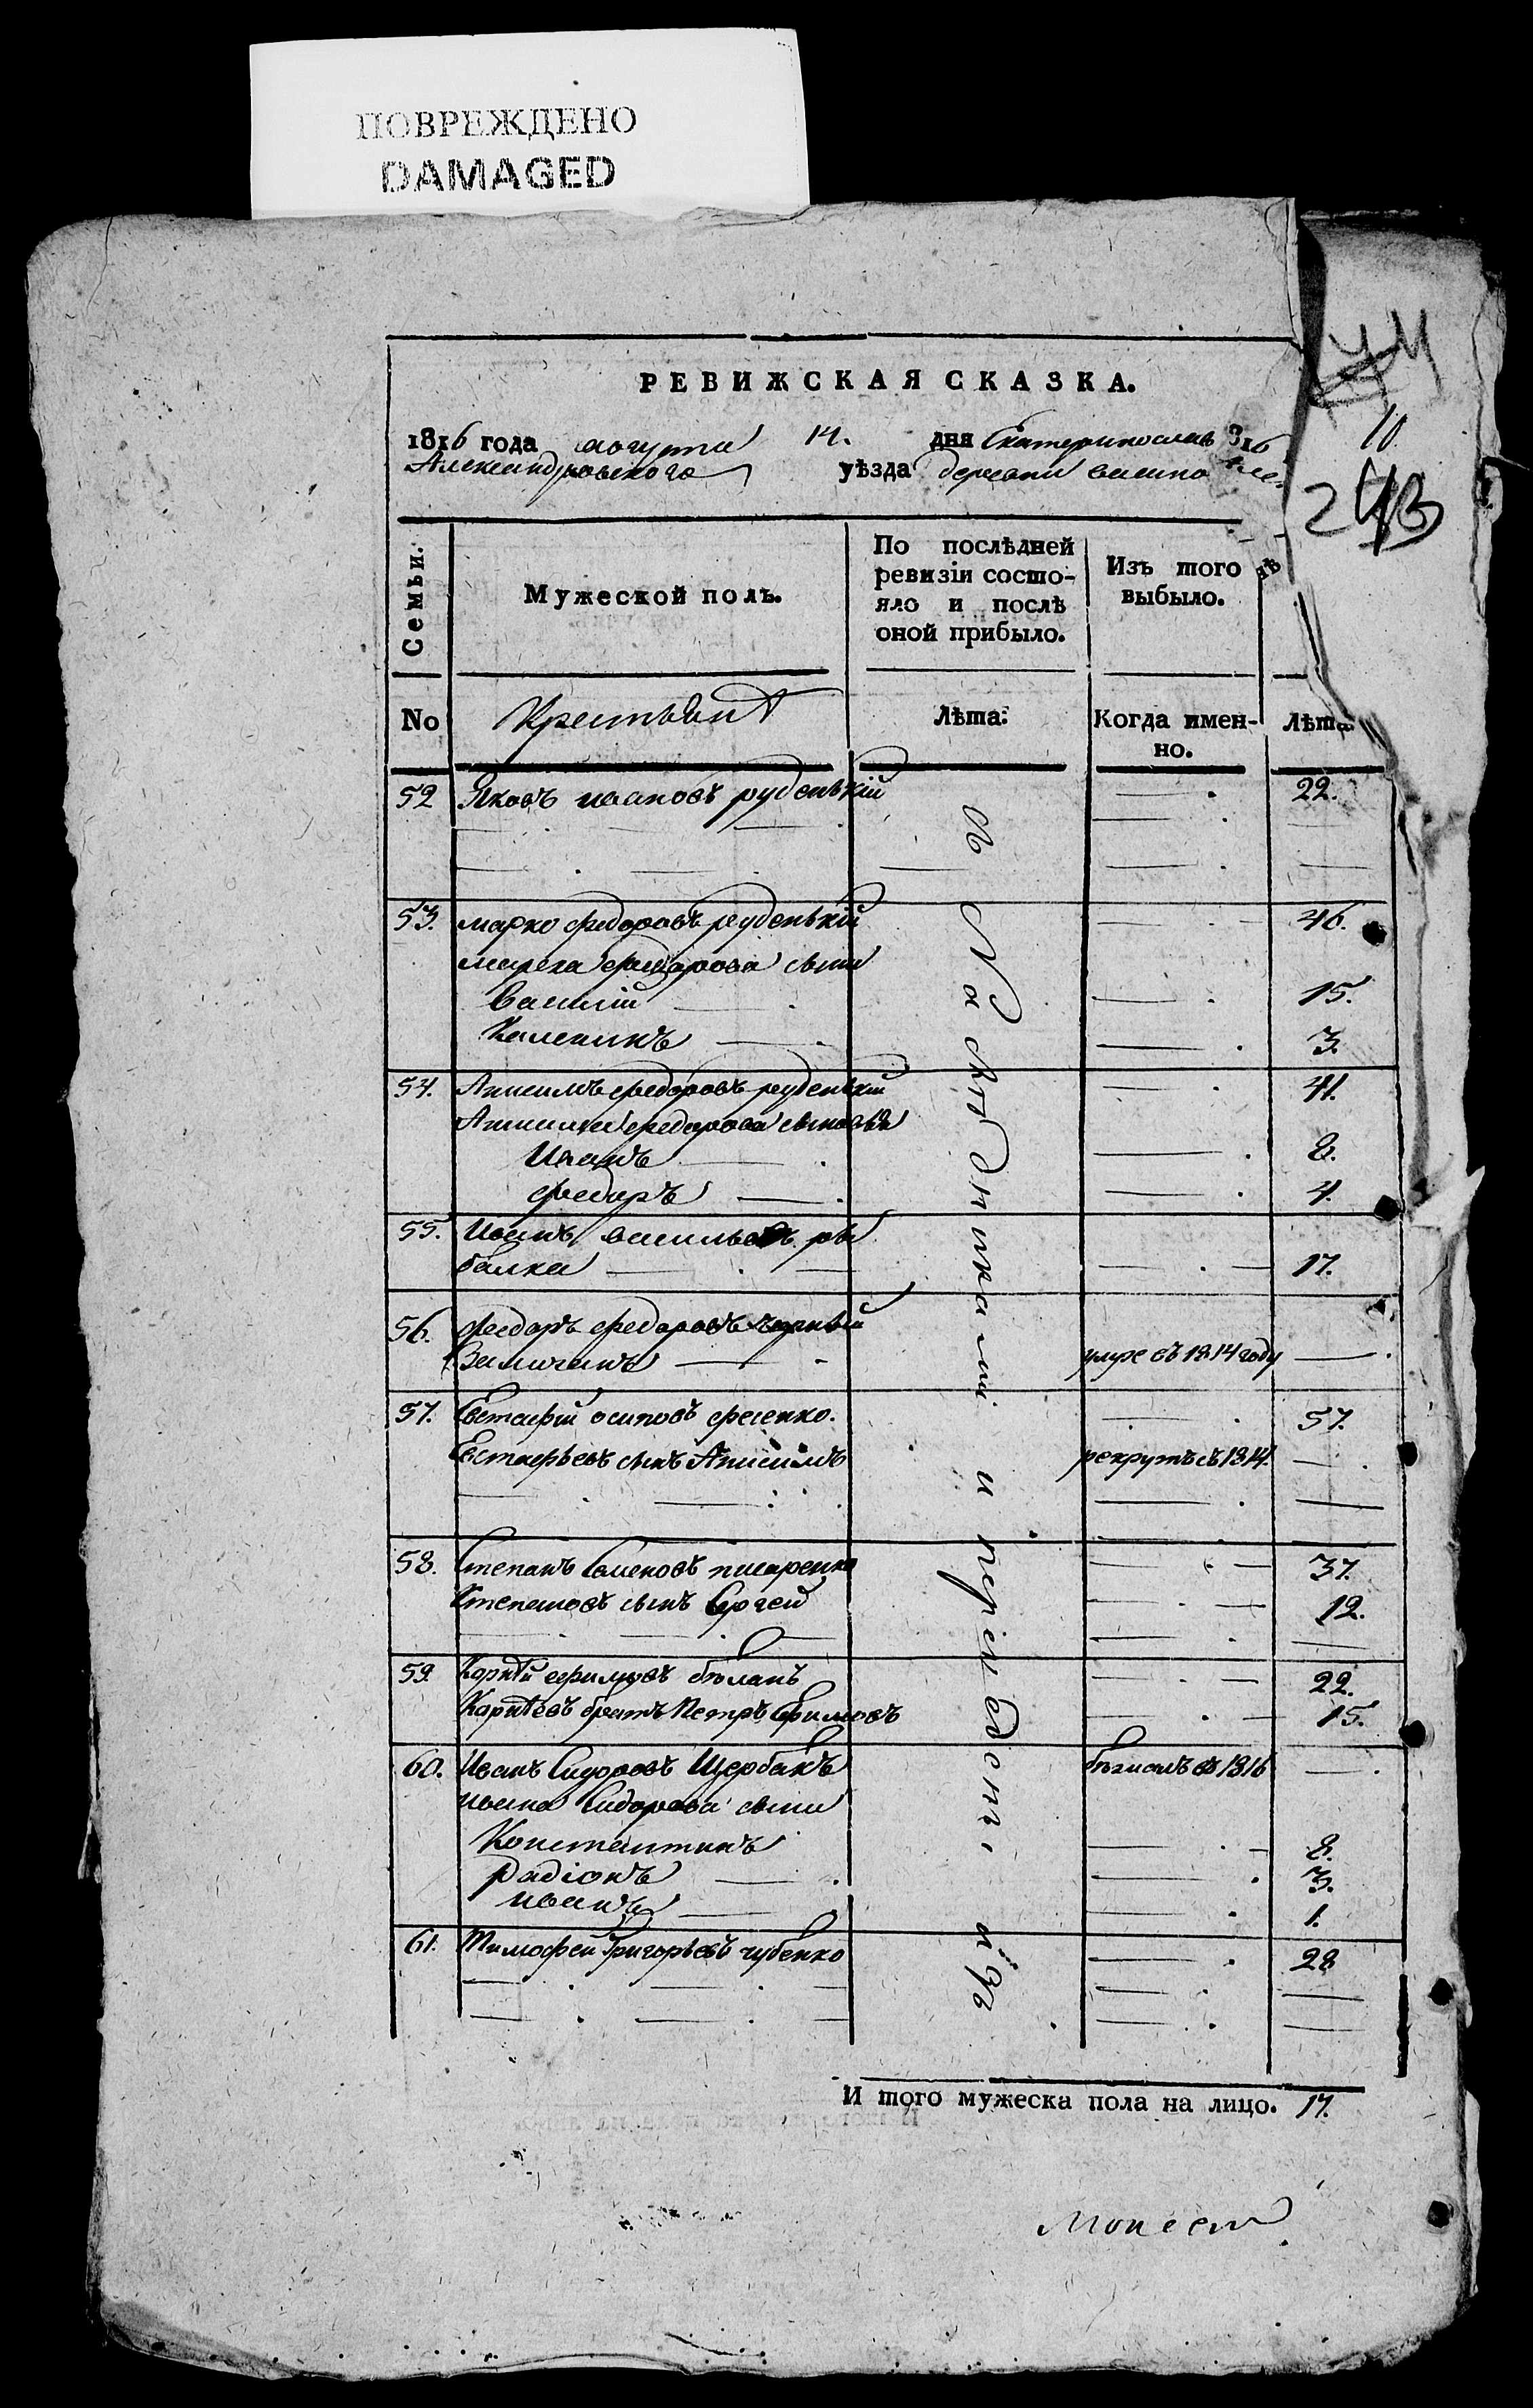 ПОВРЕЖДЕНО
DAMAGED
РЕВИЖСКАЯ СКАЗКА.
1816 года августа 14. дня Екатеринослав
Александровскаго уѣзда деревни
10.
Семьи.
Мужеской полъ.
По послѣдней ревизіи состо-
яло и послѣ
оной прибыло.
Изъ того
выбыло.
No
Крестьянъ
Лѣта:
Когда имен-
но.
Лѣта
52 Яковъ ивановъ руденькій 22.
53. марко федоровъ руденькій 46.
марка федорова сын
василій 15.
Каленикъ 3.
54. Анисимъ федоровъ руденькій 41.
Анисима федорова сыновья
Иванъ 8.
федоръ 4.
55. Иванъ васильевъ ры
балка 17.
56. федоръ федоровъ чорный
умре въ 1814 году
57. Евстафій осиповъ фесенко. 57.
Евстафьевъ сынъ Анисимъ рекрутъ въ 1814.
58. Степанъ Семеновъ писаренко 37.
Степановъ сынъ Сергей 12.
59. Корнѣй ефимовъ бѣланъ 22.
Корнѣевъ братъ Петръ Ефимовъ 15.
60. Иванъ Сидоровъ Щербакъ бѣжалъ въ 1816
ивана Сидорова сын
Константинъ 8.
радіонъ 3.
иванъ 1.
61. Тимофей Григорьевъ чубенко 28
и изъ
И того мужеска пола на лицо. 17.